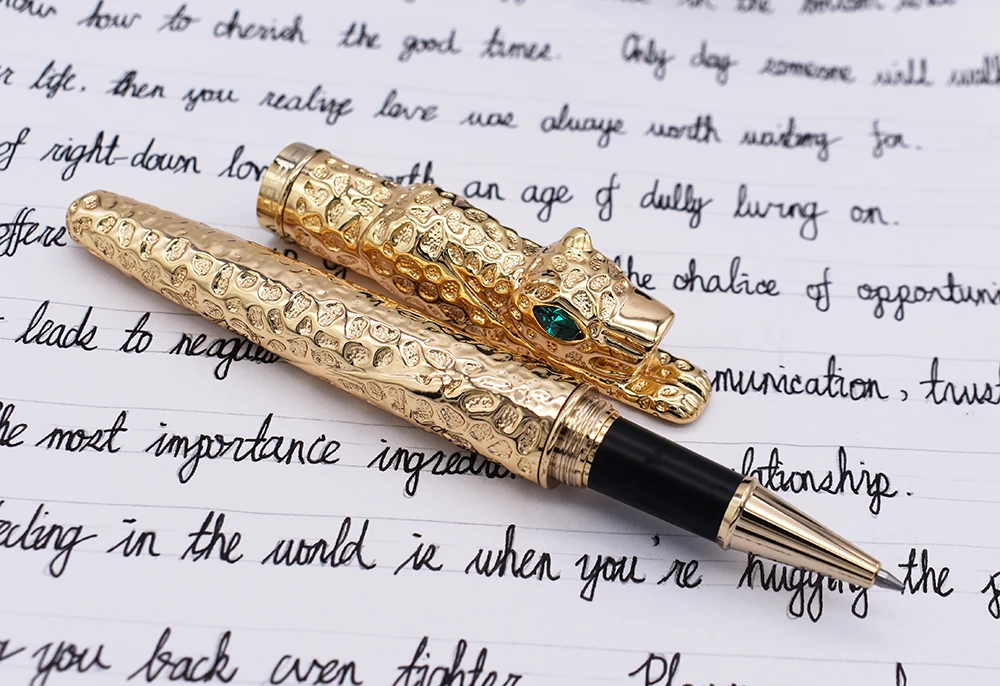 how to cherish the good times. Only day someone will walk
life, then you realize love was always worth waiting for.
of right-down lov rth an age of dully living on.
effere the chalice of opportuni
leads to neagu munication, trust
he most important ingredien lationship.
ecling in the world is when you're hugging the
you back even tighter.